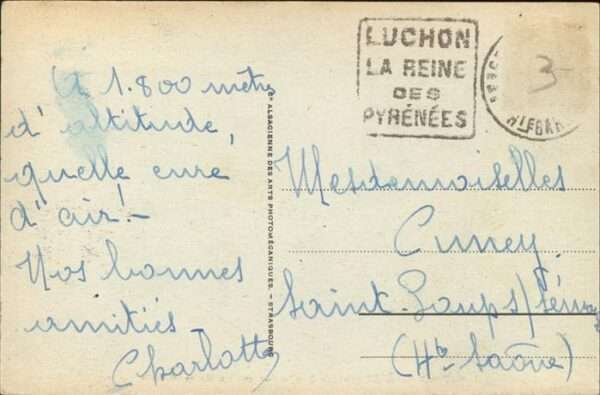 A 1.800 mètres
d'altitude,
quelle cure
d'air! -
Nos bonnes
amitiés
Charlotte
Cie ALSACIENNE DES ARTS PHOTOMÉCANIQUES. - STRASBOURG
LUCHON
LA REINE
DES
PYRÉNÉES
3-
Mesdemoiselles
Cuney
Saint-Loup s/
(Hte Saône)